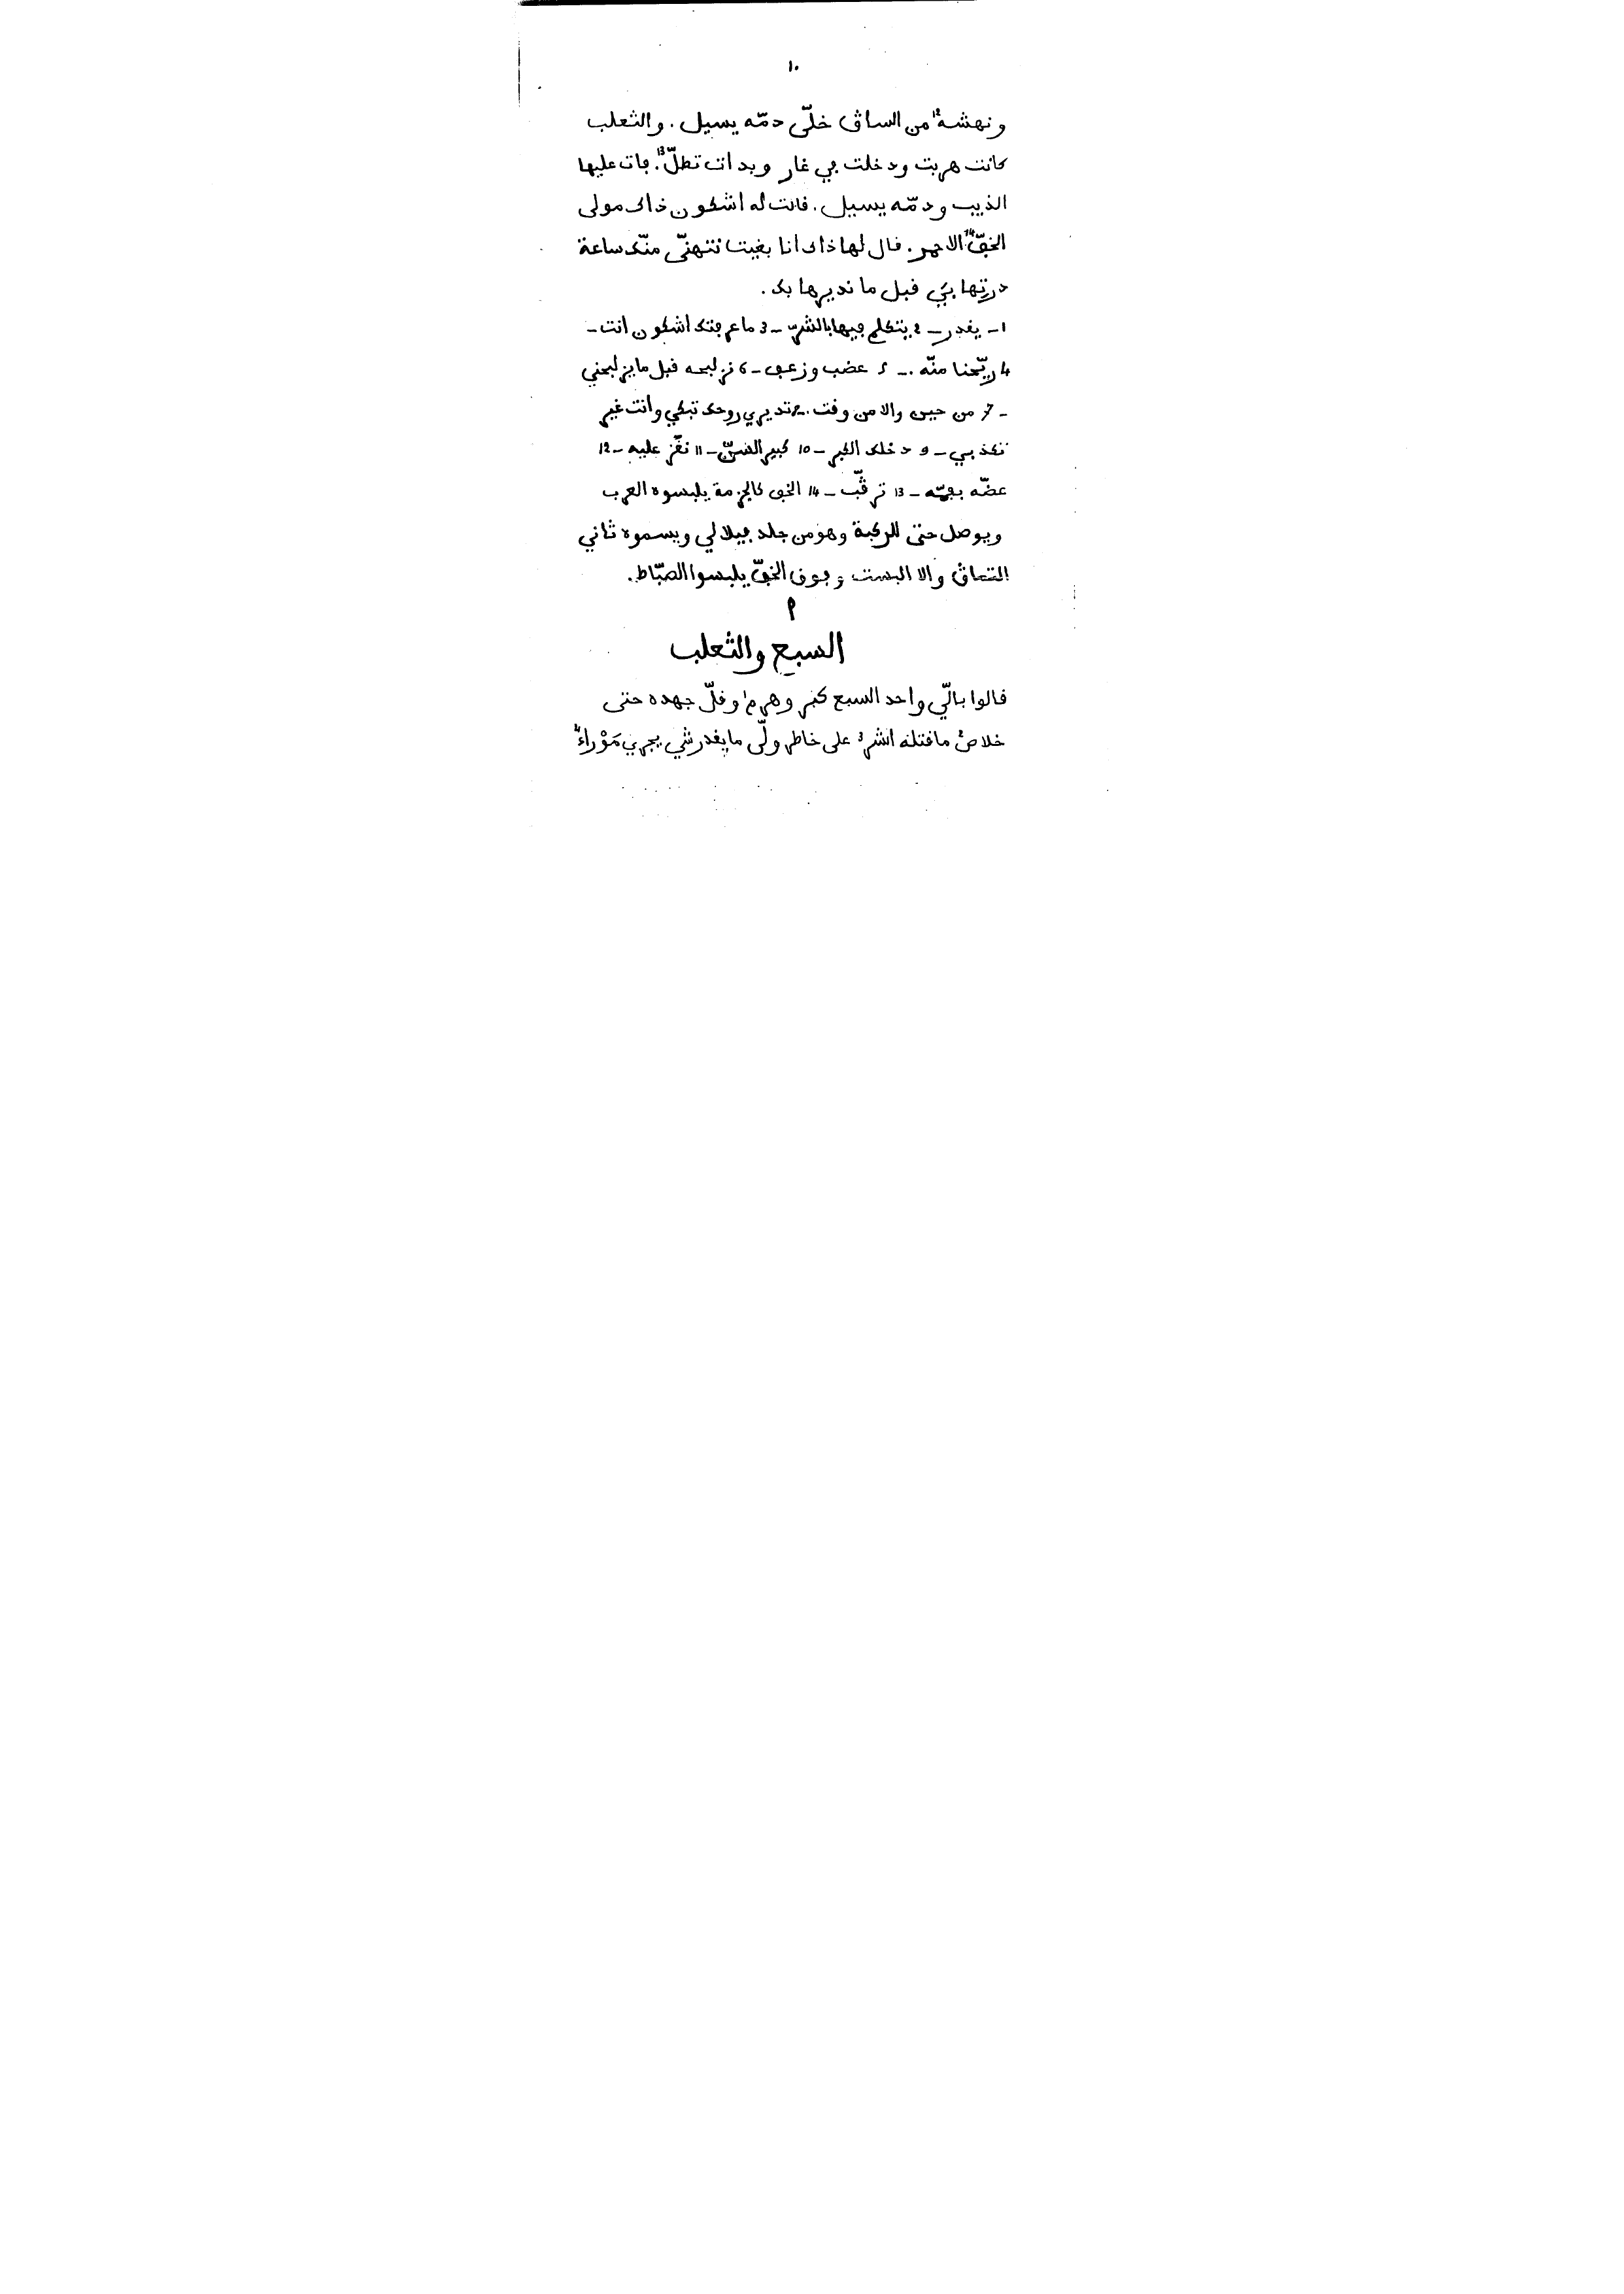 ١٠
ونهشه12 من الساڨ خلّى دمّه يسيل. والثعلب
كانت هربت ودخلت ڢي غار وبدات تطلّ13. ڢات عليها
الذيب ودمّه يسيل. ڧالت له اشكون ذاك مولى
الخڢّ14 الاحمر. ڧال لها ذاك انا بغيت نتهنّى منّك ساعة
درتِها بيَ ڧبل ما نديرها بك.
1- يغدر - 2 يتكلم ڢيها بالشرّ - 3 ما عرڢتك اشكون انت -
4 ريّحنا منّه - 5 غضب وزعڢ - 6 نزلبحه ڧبل ما يزلبحني
- 7 من حين والا من وڧت - 8 تديري روحك تبكي وانت غير
تكذبي - 9 دخلك الكبر - 10 كبير السنّ - 11 نڨّز عليه - 12
عضّه بڢمّه - 13 ترڨّب - 14 الخڢ كالجزمة يلبسوه العرب
ويوصل حتى للركبة وهو من جلد ڢيلالي ويسموه ثاني
التماڨ والا البست وڢوڧ الخڢّ يلبسوا الصبّاط.
٩
السبع والثعلب
ڧالوا بالّي واحد السبع كبر وهرم1 وڧلّ جهده حتى
خلاص2 ما ڧتله الشر3 على خاطر ولّى ما يڧدرشي يجري مَوْراء4